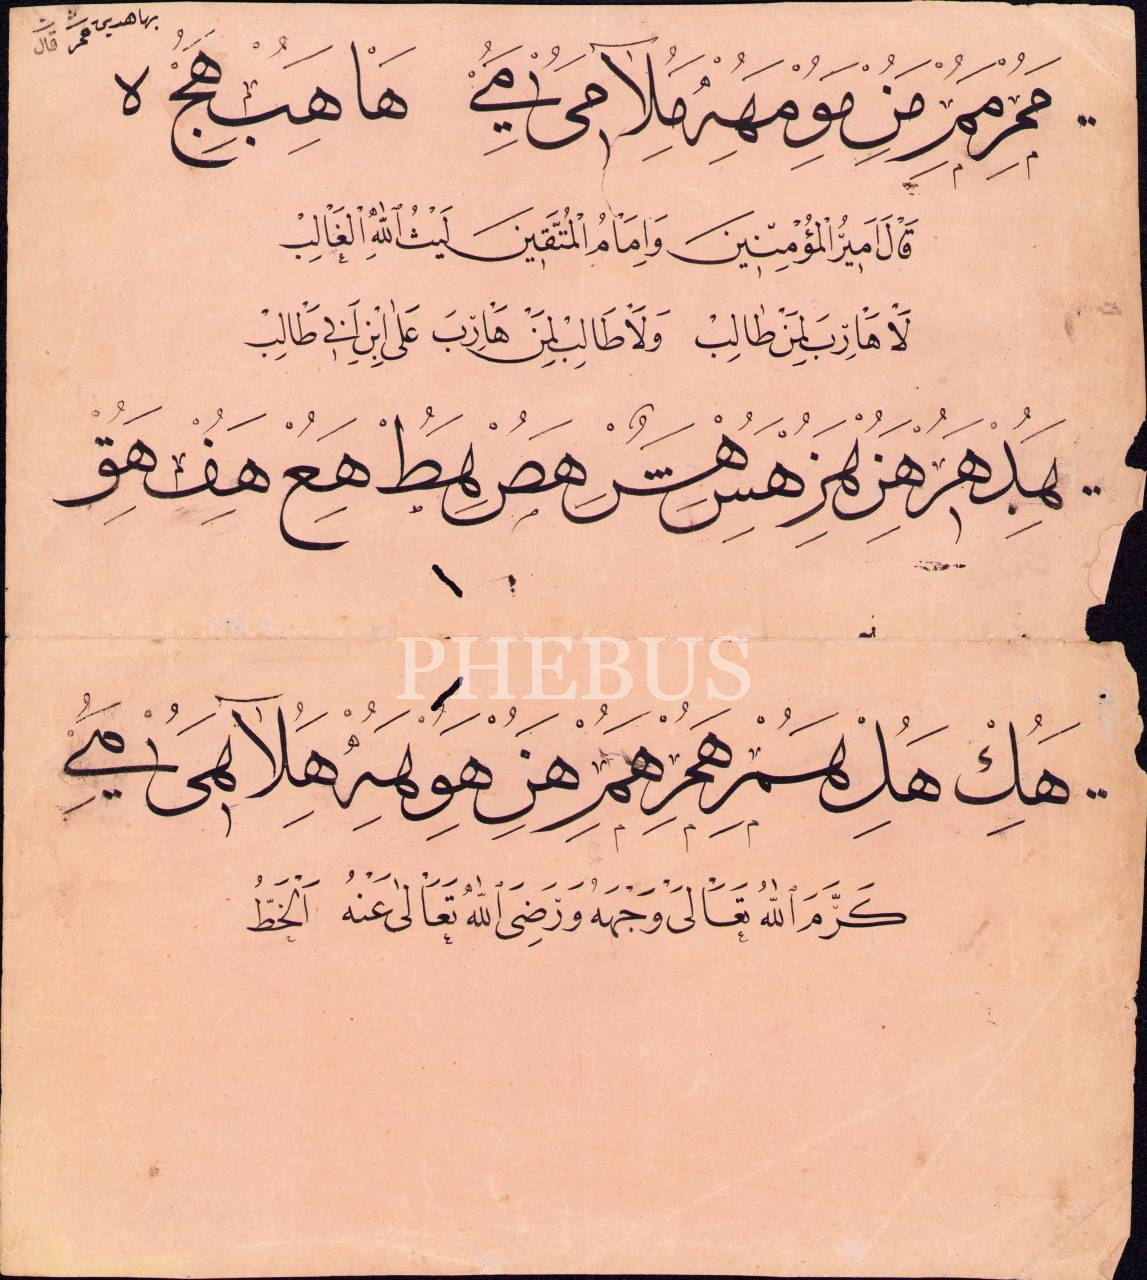 قال
محمر ممر من مو مهه ملا مى مے ها هب هج ه
قَالَ اَمِيرُ الْمُؤْمِنِينَ وَاِمَامُ الْمُتَّقِينَ لَيْثُ اللّٰهِ الْغَالِبِ
لَا هَارِبَ لِمَنْ طَالِبْ وَلَا طَالِبْ لِمَنْ هَارِبَ عَلٰى ابْنِ اَبِى طَالِبْ
هد هر هن هز هس هش هص هط هع هف هق
PHEBUS
هك هل هم همر هم هن هو هه هلا هى مے
كَرَّمَ اللّٰهُ تَعَالٰى وَجْهَهُ وَرَضِىَ اللّٰهُ تَعَالٰى عَنْهُ اَلْخَطُّ